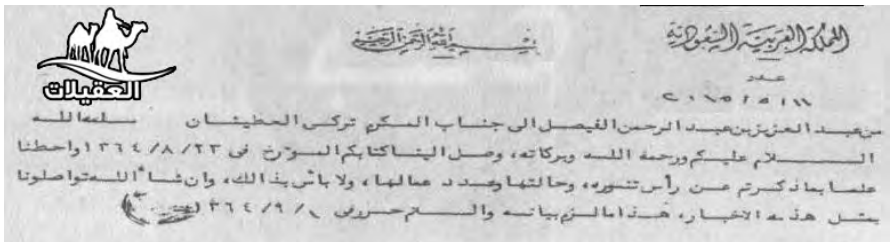 المملكة العربية السعودية
بسم الله الرحمن الرحيم
العقيلات
عدد
من عبد العزيز بن عبد الرحمن الفيصل الى جناب المكرم تركي الحطيشان سلمه الله
السلام عليكم ورحمة الله وبركاته، وصل الينا كتابكم المؤرخ في ٢٣/٨/١٣٦٤ واحطنا
علما بما ذكرتم عن رأس تنوره، وحالتها وعدد عمالها، ولا باس بذالك، وان شاء الله تواصلونا
بمثل هذه الاخبار، هذا ما لزم بيانه والسلام حرر في ١٣٦٤/٩/